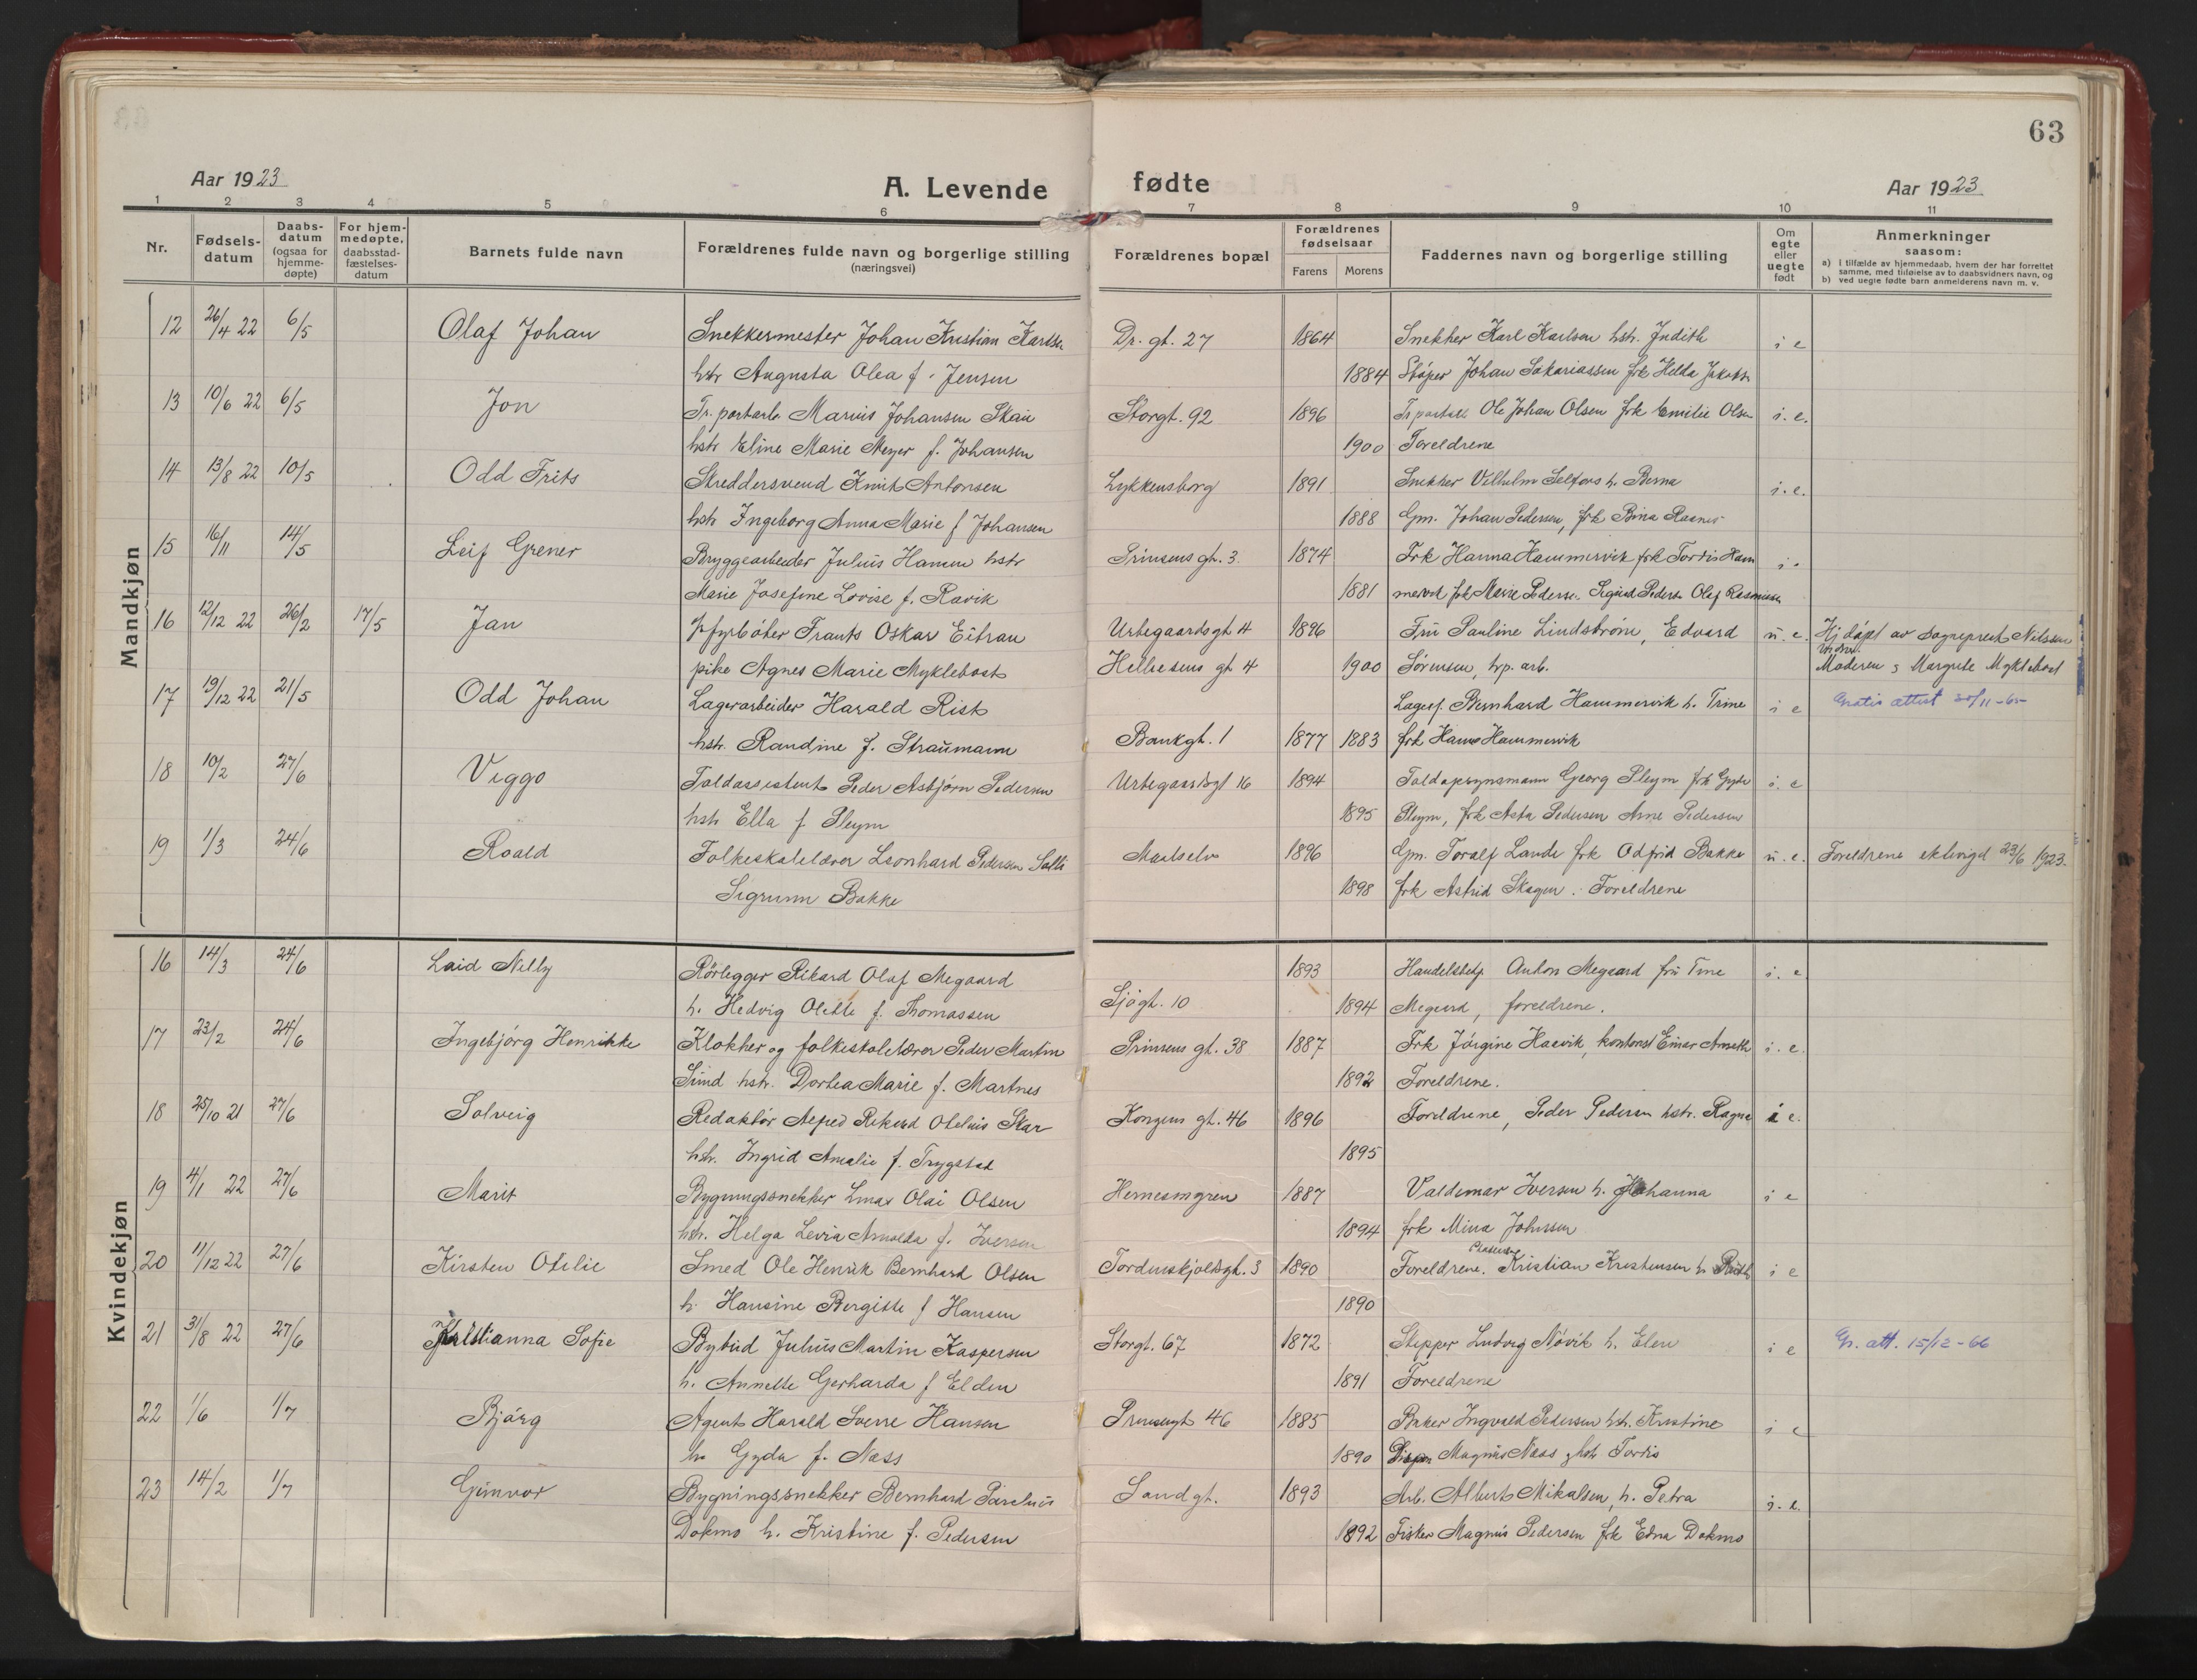 63
Aar 1923 A. Levende fødte Aar 1923
1 2 3 4 5 6 7 8 9 10 11
Nr. Fødsels-datum Daabs-datum (ogsaa for hjemme-døpte) For hjem-medøpte, daabsstad-fæstelses-datum Barnets fulde navn Forældrenes fulde navn og borgerlige stilling (næringsvei) Forældrenes bopæl Forældrenes fødselsaar Farens Morens Faddernes navn og borgerlige stilling Om egte eller uegte født Anmerkninger saasom:
a) I tilfælde av hjemmedaab, hvem der har forrettet samme, med tilføielse av to daabsvidners navn, og
b) ved uegte fødte barn anmelderens navn m. v.
Mandkjøn
12 26/4 22 6/5 Olaf Johan Snekkermester Johan Kristian Karlsen Dr. gt. 27 1864 Snekker Karl Karlsen hstr. Judith i e
hstr Augusta Olea f. Jensen 1884 Støper Johan Sakariassen frk Helda
13 10/6 22 6/5 Jon Tr. portarb. Marius Johansen Skau Storgt. 92 1896 Ole Johan Olsen frk Emilie Olsen i. e.
hstr Eline Marie Meyer f. Johansen 1900 Foreldrene
14 13/8 22 10/5 Odd Frits Skreddersvend Knut Antonsen Lykkensborg 1891 Snekker Vilhelm Selfors h. Berna i. e.
hstr Ingeborg Anna Marie f Johansen 1888 Gm. Johan Pedersen, frk Bina
15 16/11 14/5 Leif Grener Bryggearbeider Julius Hansen hstr Prinsens gt. 3. 1874 Frk Hanna Hammervik frk Tordis Ham i.
Marie Josefine Lovise f. Ravik 1881 mervik frk Marie Pedersen. Sigurd Pedersen Olaf Rasmussen
16 12/12 22 26/2 17/5 Jan fyrbøter Frants Oskar Eitran Urtegaardsgt 4 1896 Fru Pauline Lindstrøm, Edvard u. e. Hj døpt av sogneprest Nilssen
pike Agnes Marie Myklebost Hellesens gt 4 1900 Sørensen, hp. arb. Moderen & Margrete Myklebost
17 19/12 22 21/5 Odd Johan Lagerarbeider Harald Risk Lagerf. Bernhard Hammervik h. Trine i e Gratis attest 30/11-65
hstr. Randine f. Straumann Bankgt. 1 1877 1883 frk Hanna Hammervik
18 10/2 27/6 Viggo Toldassistent Peder Asbjørn Pedersen Urtegaardsgt 16 1894 Toldopsynsmann Georg Pleym frk Gyda i. e
hstr Ella f Pleym 1895 Pleym, frk Asta Pedersen Arne Pedersen
19 1/3 24/6 Roald Folkeskolelærer Leonhard Pedersen Solli Maalselv 1896 Gm. Toralf Lande frk Odfrid Bakke u. e. Foreldrene ektevigd 23/6 1923.
Sigrunn Bakke 1898 frk Astrid Skagen. Foreldrene
Kvindekjøn
16 14/3 24/6 Laid Nelly Rørlegger Rikard Olaf Megaard 1893 Handelsbetj. Anton Megaard fru Tine i. e
h. Hedvig Olette f. Thomassen Sjøgt. 10 1894 Megaard, foreldrene.
17 23/2 24/6 Ingebjørg Henrikke Klokker og folkeskolelærer Peder Martin Prinsens gt. 38 1887 Frk Jørgine Haavik, kontorist Einar i. e.
Sund hstr. Dortea Marie f. Martnes 1892 Foreldrene.
18 25/10 21 27/6 Solveig Redaktør Alfred Rikard Otelius Skar Kongens gt. 46 1896 Foreldrene, Peder Pedersen hstr. Ragna i e.
hstr. Ingrid Amalie f. Trygstad 1895
19 4/1 22 27/6 Marit Bygningssnekker Olai Olsen Hernesmyren 1887 Valdemar Iversen h. Johanna i e
hstr. Helga Levia Arnolda f. Iversen 1894 frk Mina Johnssen
20 11/12 22 27/6 Kirsten Otelie Smed Ole Henrik Bernhard Olsen Tordenskjoldsgt. 3 1890 Foreldrene. Kristian Kristensen h. i e
h. Hansine Bergitte f Hansen 1890
21 31/8 22 27/6 Kristianna Sofie Bybud Julius Martin Kaspersen Storgt. 67 1872 Skipper Ludvig Növik h. Elen i e Gr. att. 15/12-66
h. Annette Gerharda f Elden 1891 Foreldrene
22 1/6 1/7 Bjørg Agent Harald Sverre Hansen Prinsensgt 46 1885 Baker Ingvald Pedersen hstr. Kristine i e
h. Gyda f. Næss 1890 Magnus Næss hstr Tordis
23 14/2 1/7 Gunvor Bygningssnekker Bernhard Parelius Sandgt. 1893 Arb. Albert Mikalsen, h. Petra i. e.
Dokmo h. Kristine f. Pedersen 1892 Fisker Magnus Pedersen frk Edna Dokmo